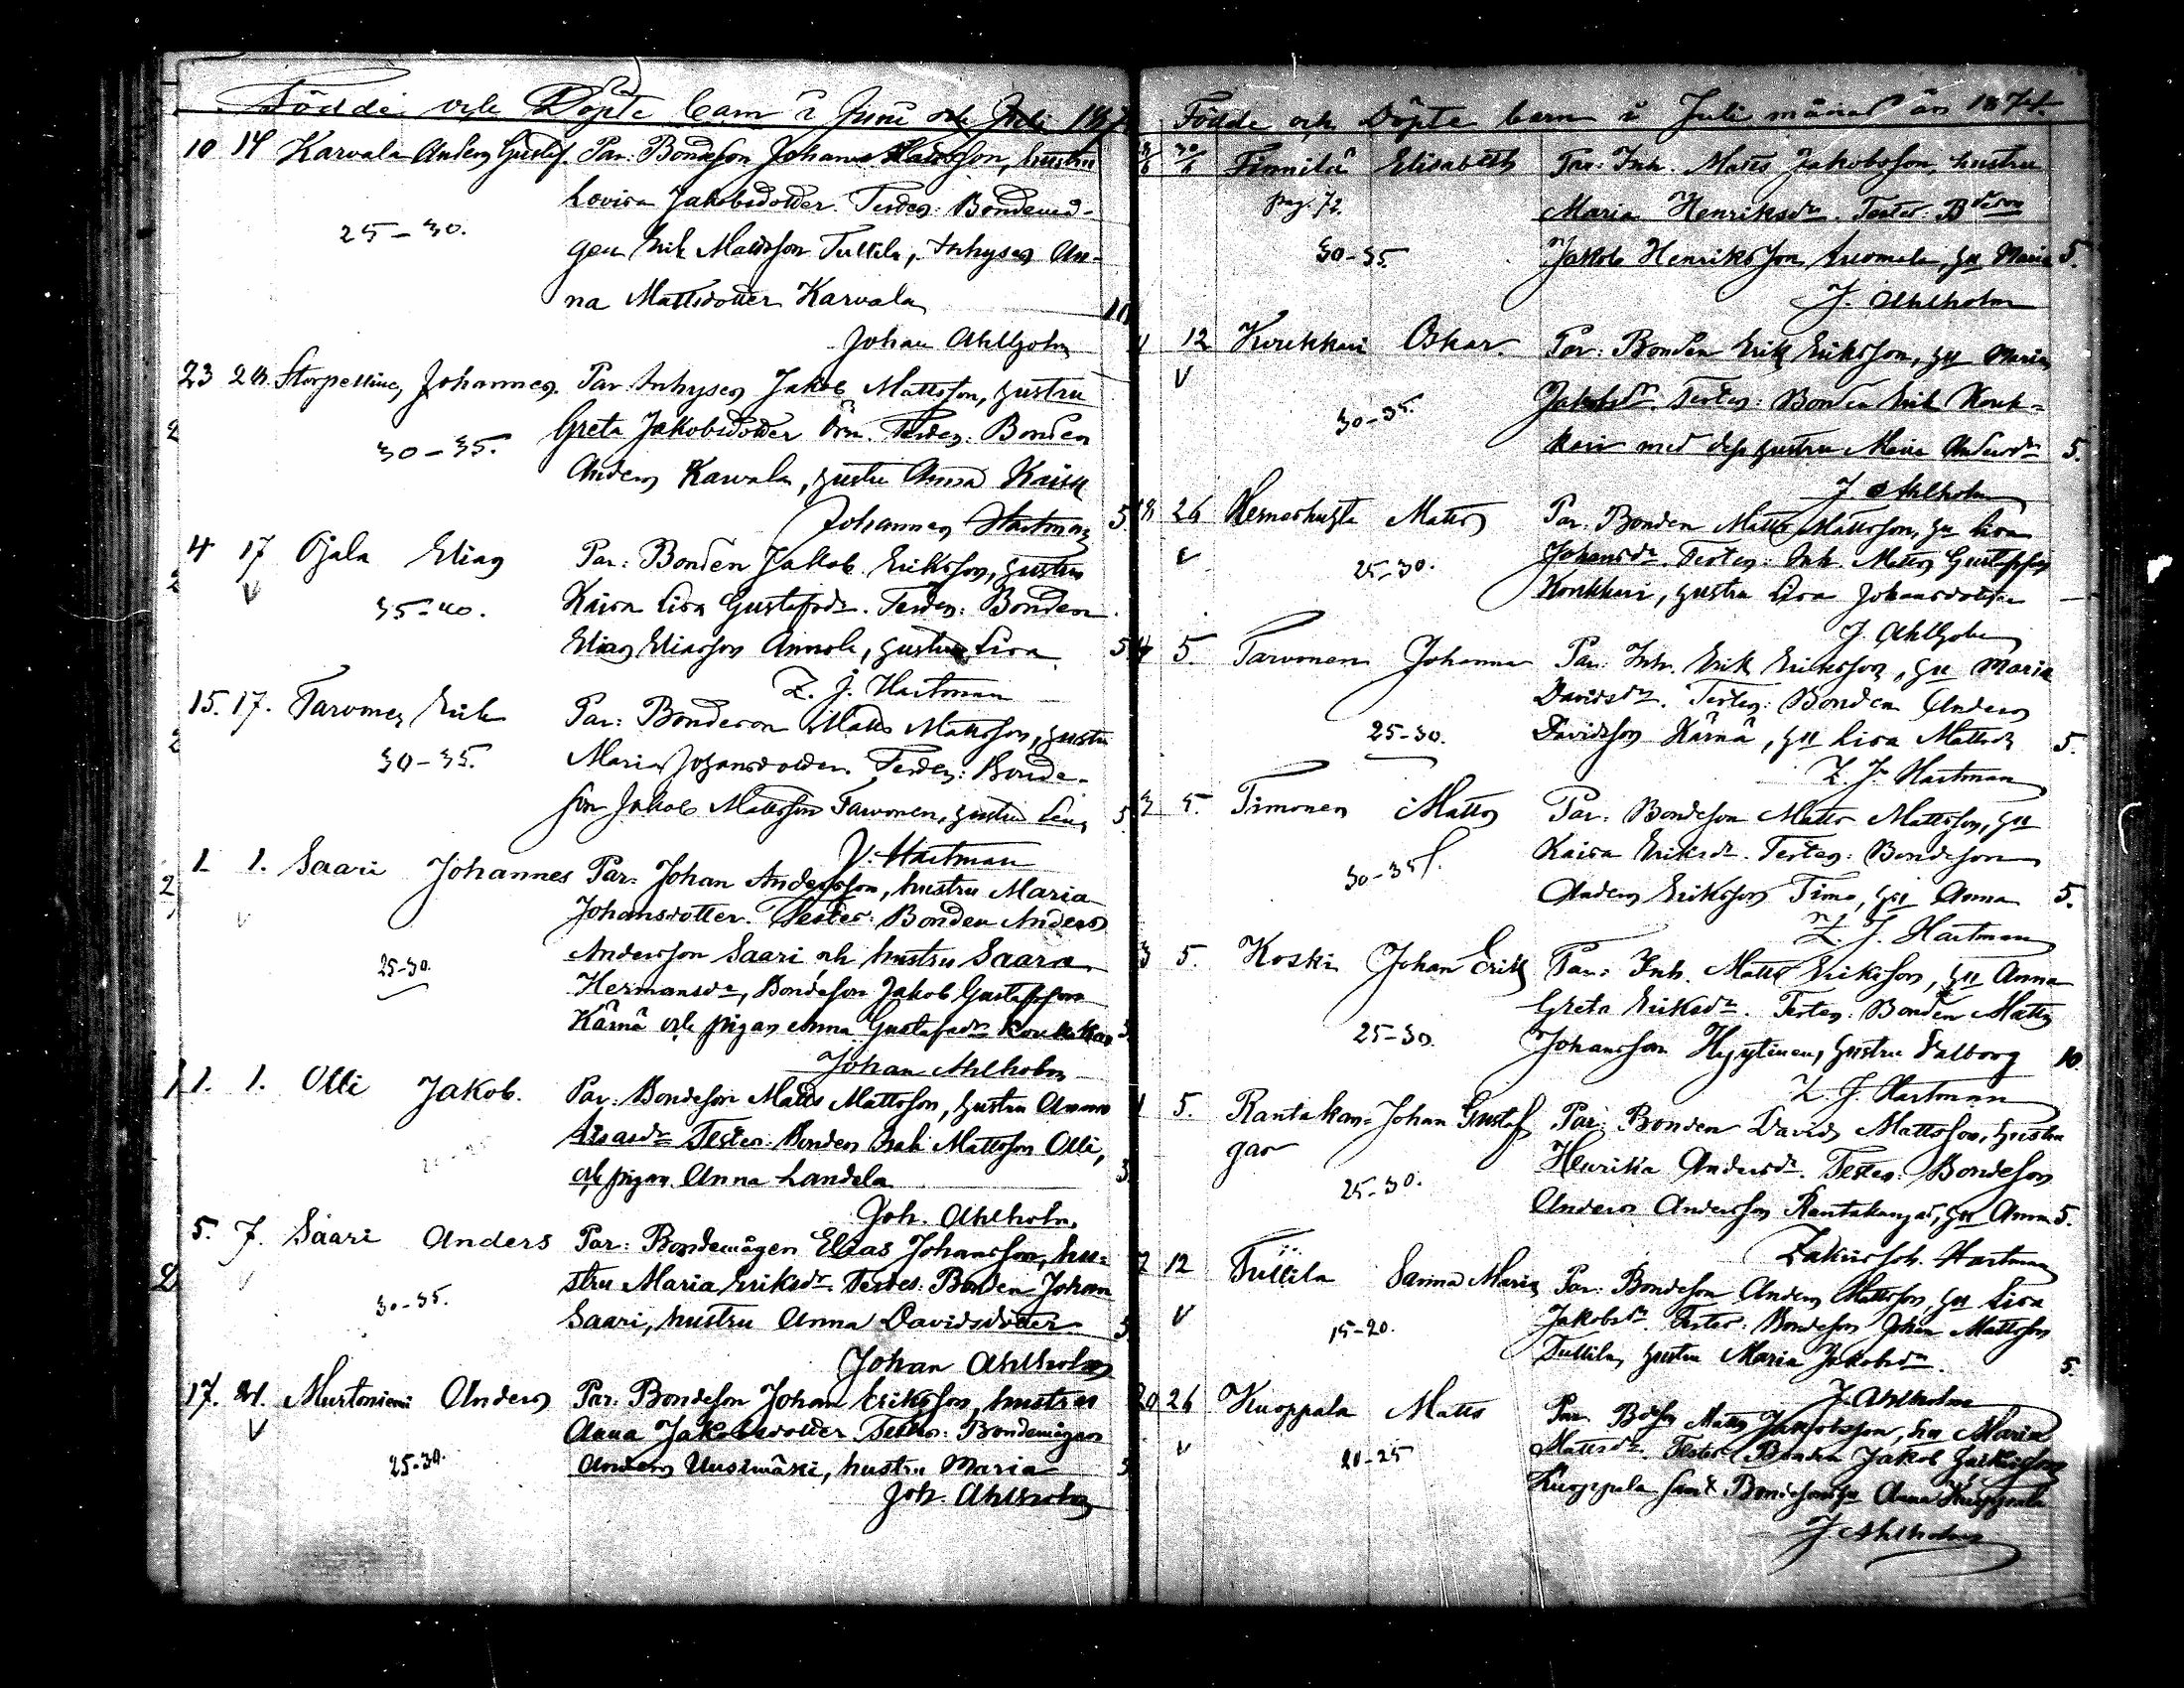 Födde och Döpte barn i Juni och Juli 187
10 14 Karvala Anders Gustaf. Par: Bondeson Johan Mattsson, hustru
Lovisa Jakobsdotter. Testes: Bondemå-
25-30.
gen Erik Mattsson Tullila, Inhyses An-
na Mattsdotter Karvala 10
Johan Ahlholm
23 28. Storpelline, Johannes. Par: Inhyses Jakob Mattsson, hustru
Greta Jakobsdotter Örn. Testes: Bonden
30-35.
Anders Karvala, hustru Anna Kaisa
Johannes Hartman 5
4 17 Ojala Elias Par: Bonden Jakob Eriksson, hustru
V
35-40. Kaisa Lisa Gustafsdr. Testes: Bonden
Elias Eliasson Annola, hustru Lisa 5
Z. J. Hartman
15. 17. Tarvonen Erik Par: Bondeson Matts Mattsson, hustru
30-35. Maria Johansdotter. Testes: Bonde-
son Jakob Mattsson Tarvonen, hustru Lena 5
J. Hartman
1 1. Saari Johannes Par: Johan Andersson, hustru Maria
Johansdotter. Testes: Bonden Anders
25-30. Andersson Saari och hustru Saara
Hermansdr, Bondeson Jakob Gustafsson
Kärnä och pigan Anna Gustafsdr
Johan Ahlholm
1. 1. Olli Jakob. Par: Bondeson Matts Mattsson, hustru Anna
Testes: Bonden Erik Mattsson Olli,
och pigan Anna Landela 5
Joh. Ahlholm.
5. 7. Saari Anders Par: Bondemågen Elias Johansson, hu-
stru Maria Eriksdr. Testes: Bonden Johan
30-35.
Saari, hustru Anna Davidsdotter 5
Johan Ahlholm
17. Murtoniemi Anders Par: Bondeson Johan Eriksson, hustru
V
Anna Jakobsdotter Testes: Bondemågen
25-30. Anders Uusimäki, hustru Maria 5
Joh. Ahlholm
Födde och Döpte barn i Juli månad år 1874.
Finnilä Elisabeth Par: Inh. Matts Jakobsson, hustru
pag. 72. Maria Henriksdr. Testes:
30-35. Jakob Henriksson Luomala, hu Maria 5.
J. Ahlholm
12 Kuukkari Oskar. Par: Bonden Erik Eriksson, hu Maria
V
30-35. Jakobsdr. Testes: Bonden Erik Kouk-
kari med dess hustru Maria Andersdr 5.
J. Ahlholm
26 Hernesluhta Matts Par: Bonden Matts Mattsson, hu Lisa
V 25-30. Johansdr. Testes: Inh. Matts Gustafsson
Koukkari, hustru Lisa Johansdotter —
J. Ahlholm
5. Tarvonen Johanna Par: Inh. Erik Eriksson, hu Maria
Davidsdr. Testes: Bonden Anders
25-30. Davidsson Kärnä, hu Lisa Mattsdr 5.
Z. J. Hartman
3 5. Timonen Matts Par: Bondeson Matts Mattsson, hu
Kaisa Eriksdr. Testes: Bondeson
30-35. Anders Eriksson Timo, hu Anna 5.
Z. J. Hartman
3 5. Koski Johan Erik Par: Inh. Matts Eriksson, hu Anna
Greta Eriksdr. Testes: Bonden Matts
25-30. Johansson Hyytinen, hustru Valborg 10.
Z. J. Hartman
5. Rantakan- Johan Gustaf Par: Bonden David Mattsson, hustru
gas Henrika Andersdr. Testes: Bondeson
25-30. Anders Andersson Rantakangas, hu Anna 5.
Zakris Joh. Hartman
12 Tullila Sanna Maria Par: Bondeson Anders Mattsson, hu Lisa
V
15-20. Jakobsdr. Testes: Bondeson Johan Mattsson
Tullila, hustru Maria Jakobsdr. 5.
J. Ahlholm
20 26 Kuoppala Matts Par. Matts Jakobsson, hu Maria
V 20-25 Mattsdr. Testes: Bonden Jakob
Kuoppala samt Anna Kuoppala
J. Ahlholm